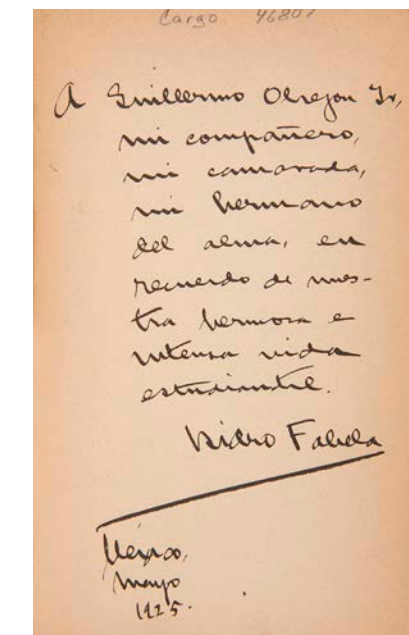 Cargo 46807
A Guillermo Obregon Jr,
mi compañero,
mi camarada,
mi hermano
del alma, en
recuerdo de nues-
tra hermosa e
intensa vida
estudiantil.
Isidro Fabela
México,
mayo
1925.